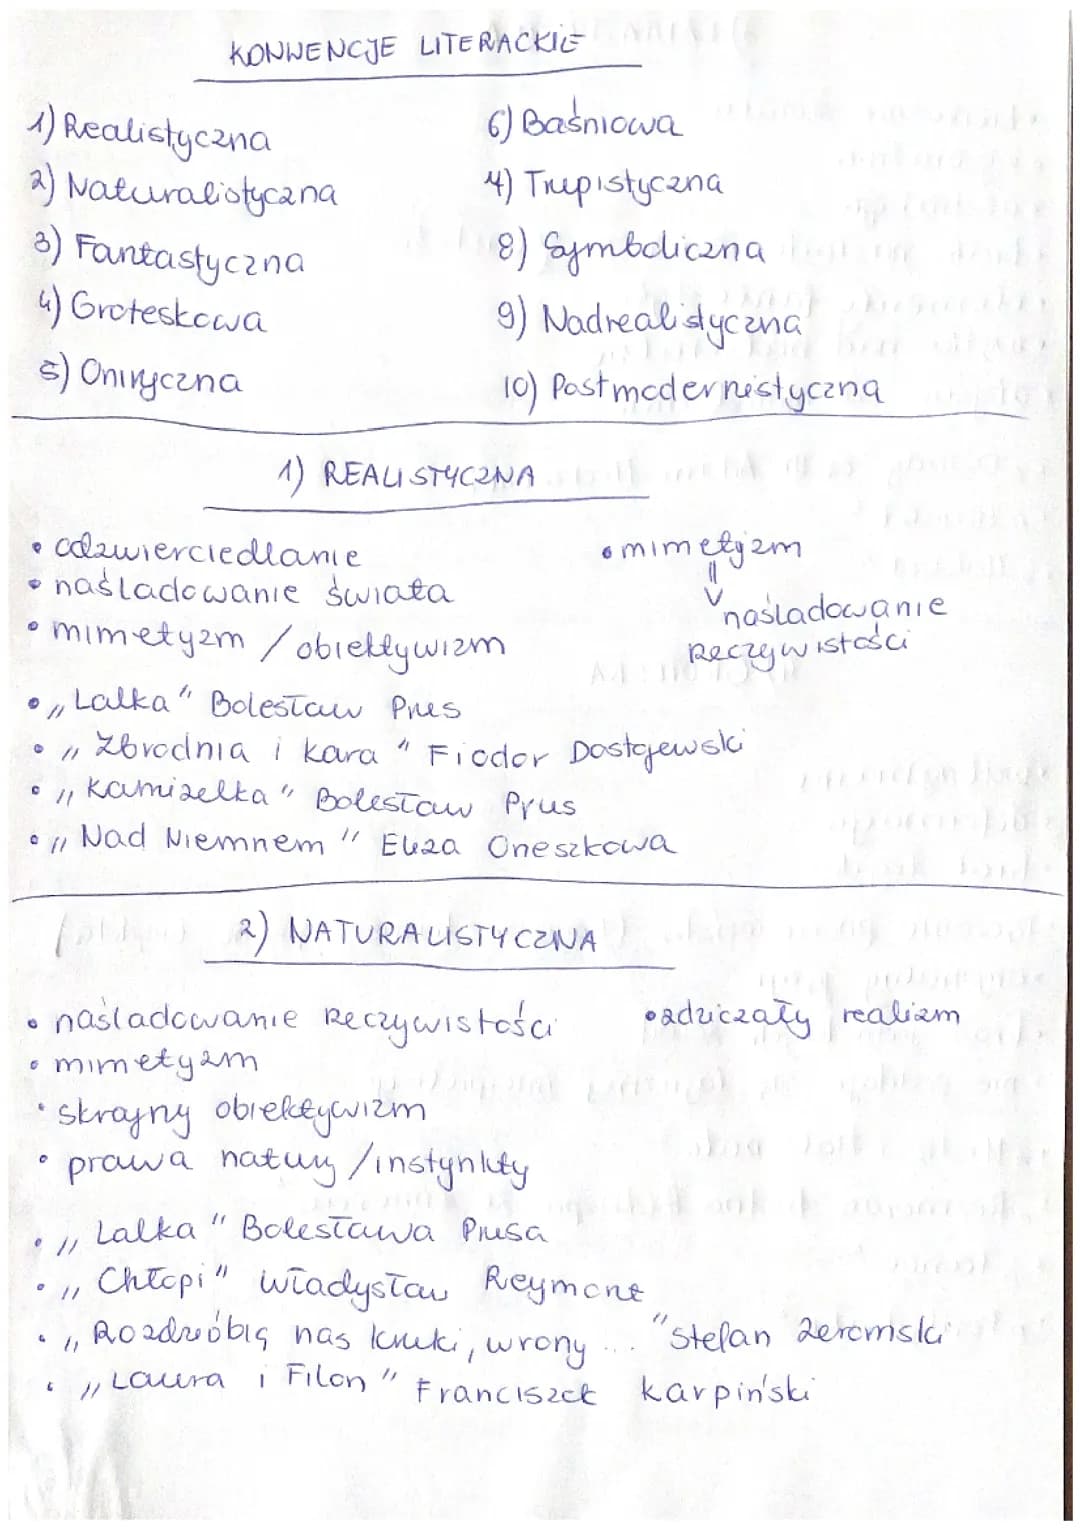 KONWENCJE LITERACKIE
1) Realistyczna
2) Naturalistyczna
3) Fantastyczna
4) Groteskowa
5) Oniryczna
6) Baśniowa
4) Trupistyczna
8) Symboliczna
9) Nadrealistyczna
10) Postmodernistyczna
1) REALISTYCZNA
• odzwierciedlanie
• naśladowanie świata
• mimetyzm / obiektywizm
• mimetyzm
naśladowanie
Rzeczywistości
• „Lalka" Bolesław Prus
• „Zbrodnia i kara" Fiodor Dostojewski
• „Kamizelka" Bolesław Prus
• „Nad Niemnem" Eliza Orzeszkowa
2) NATURALISTYCZNA
• naśladowanie Rzeczywistości
• mimetyzm
• skrajny obiektywizm
• prawa natury /instynkty
• zdziczały realizm
• „Lalka" Bolesława Prusa
• „Chłopi" Władysław Reymont
• „Rozdzióbią nas kruki, wrony..." Stefan Żeromski
• „Laura i Filon" Franciszek Karpiński